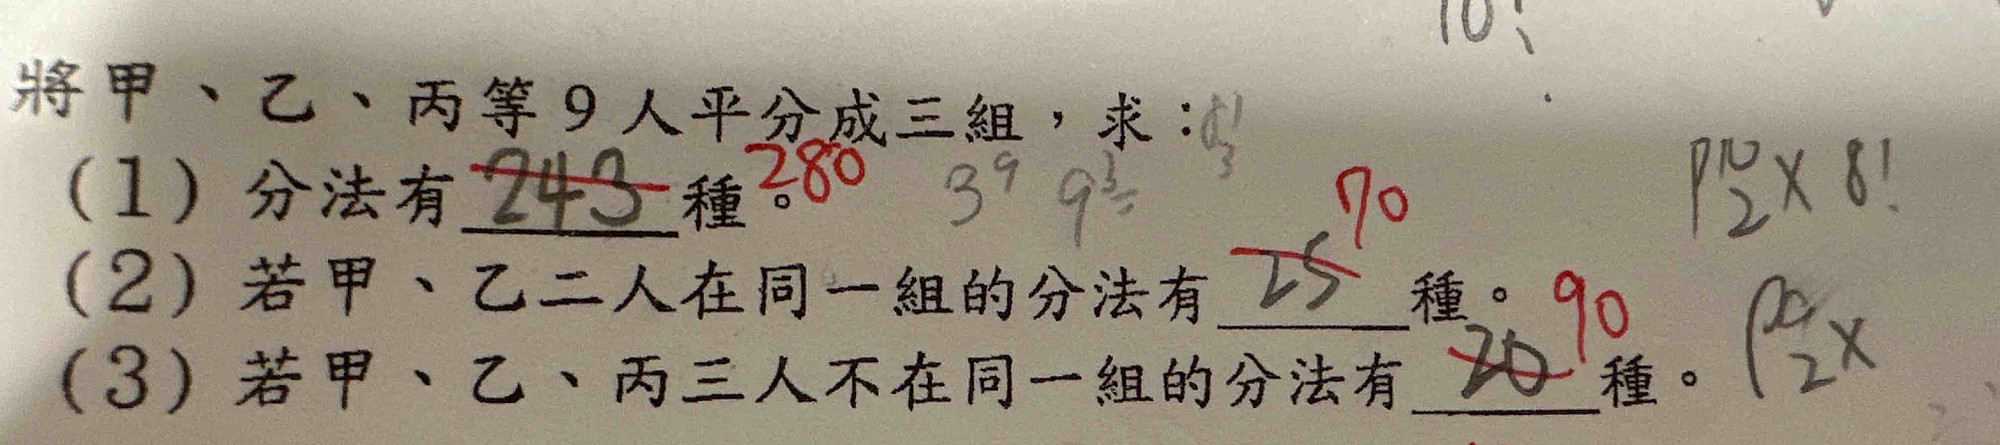 10!
將甲、乙、丙等9人平分成三組，求：
(1) 分法有 243 種。280 3⁹ 9³ P¹⁰₂ X 8!
(2) 若甲、乙二人在同一組的分法有 25 種。70
(3) 若甲、乙、丙三人不在同一組的分法有 20 種。90